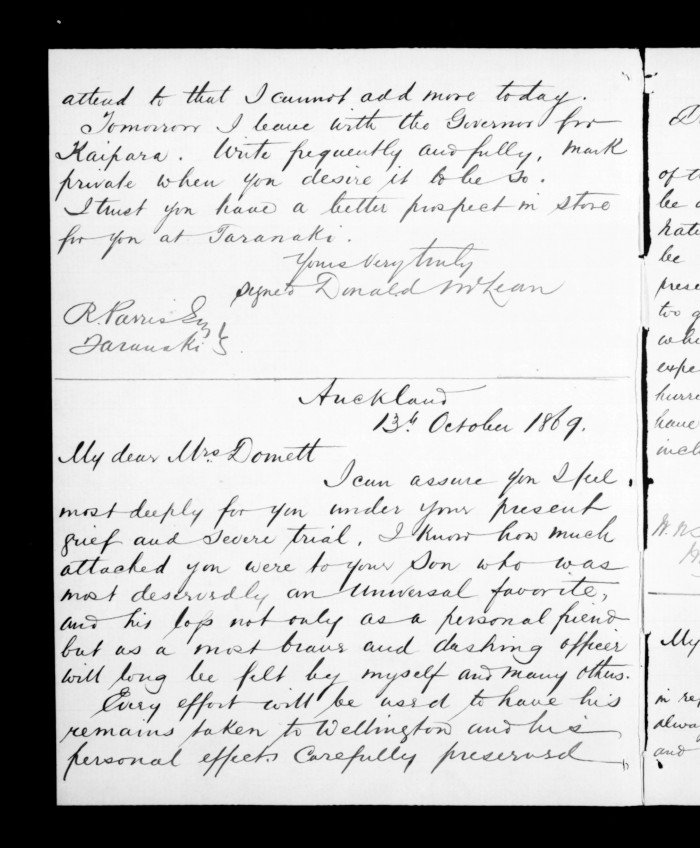 attend to that I cannot add more today.
Tomorrow I leave with the Governor for
Kaipara. Write frequently and fully, mark
private when you desire it to be so.
I trust you have a better prospect in store
for you at Taranaki.
Yours very truly
signed Donald McLean
R. Parris Esq
Taranaki
Auckland
13th October 1869.
My dear Mrs Domett
I can assure you I feel
most deeply for you under your present
grief and severe trial. I know how much
attached you were to your Son who was
most deservedly an universal favorite,
and his loss not only as a personal friend
but as a most brave and dashing officer
will long be felt by myself and many others.
Every effort will be used to have his
remains taken to Wellington and his
personal effects carefully preserved
of th
be
be
prese
too
whe
expe
hurri
have
incl
My
in re
alwa
and